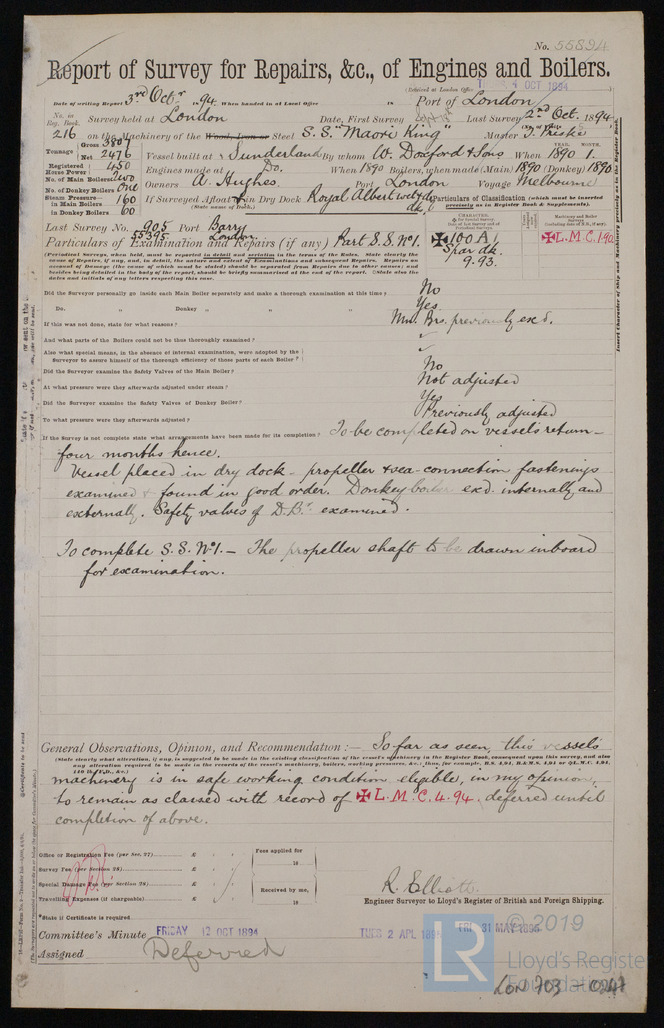 No. 55894
Report of Survey for Repairs, &c., of Engines and Boilers.
(Received at London Office TUES 4 OCT 1894
Date of writing Report 3rd Octr 1894. When handed in at Local Office 18 Port of London
No. in Reg. Book. Survey held at London Date, First Survey Last Survey 2nd Oct. 1894
216 on the Machinery of the Wood, Iron or Steel S.S. "Maori King" Master
Tonnage Gross 3807 Net 2476 Vessel built at Sunderland By whom W. Doxford & Sons When YEAR. 1890 MONTH. 1.
Registered Horse Power 450 Engines made at Do. When 1890 Boilers, when made (Main) 1890 (Donkey) 1890
No. of Main Boilers Two Owners A. Hughes Port London Voyage Melbourne
No. of Donkey Boilers One
Steam Pressure in Main Boilers 160 If Surveyed Afloat or in Dry Dock Royal Albert
(State name of Dock.)
in Donkey Boilers 60
Particulars of Classification (which must be inserted precisely as in Register Book & Supplements).
Last Survey No. 905 Port Barry
55395 London
Particulars of Examination and Repairs (if any) Part S.S. No 1.
✠100A1
Spar dk.
9.93.
✠L.M.C. 1.90
(Periodical Surveys, when held, must be reported in detail and seriatim in the terms of the Rules. State clearly the
Did the Surveyor personally go inside each Main Boiler separately and make a thorough examination at this time? No
Do. „ Donkey „ „ „ Yes
If this was not done, state for what reasons? Mn. Brs. previously exd.
And what parts of the Boilers could not be thus thoroughly examined? ✓
Also what special means, in the absence of internal examination, were adopted by the
Surveyor to assure himself of the thorough efficiency of those parts of each Boiler? ✓
Did the Surveyor examine the Safety Valves of the Main Boiler? No
At what pressure were they afterwards adjusted under steam? Not adjusted
Did the Surveyor examine the Safety Valves of Donkey Boiler? Yes
To what pressure were they afterwards adjusted? Previously adjusted
If the Survey is not complete state what arrangements have been made for its completion? To be completed on vessels return
four months hence.
Vessel placed in dry dock - propeller & sea-connection fastenings
examined & found in good order. Donkey boiler exd. internally and
externally. Safety valves of D.Br. examined.
To complete S.S. No 1. - The propeller shaft to be drawn inboard
for examination.
General Observations, Opinion, and Recommendation :— So far as seen, this vessels
(State clearly what alteration, if any, is suggested to be made in the existing classification of the vessel's machinery in the Register Book, consequent upon this survey, and also
any alterations required to be made in the records of the vessel's machinery, boilers, working pressures, &c.
machinery is in safe working condition eligible, in my opinion,
to remain as classed with record of ✠L.M.C. 4.94, deferred until
completion of above.
Office or Registration Fee (per Sec. 27) £ Fees applied for
Survey Fee (per Section 28) £ 18
Special Damage Fee (per Section 28) £ Received by me,
Travelling Expenses (if chargeable) £ 18
R. Elliott.
Engineer Surveyor to Lloyd's Register of British and Foreign Shipping.
*State if Certificate is required
Committee's Minute FRIDAY 12 OCT 1894 TUES 2 APL 189 FRI 31 MAY 1895
Assigned Deferred
LR
© 2019
Lloyd's Register
Foundation
LON 703 - 0247